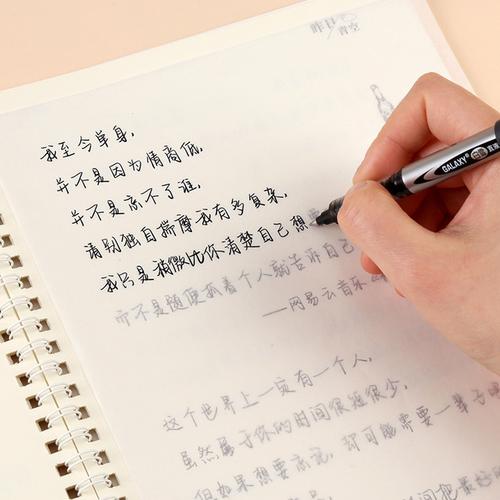 昨日
青空
我至今单身,
并不是因为情商低,
并不是忘不了谁,
请别独自揣摩我有多复杂,
我只是稍微比你清楚自己想
而不是随便抓着个人就告诉自己
——网易云音乐
GALAXY®
直液
这个世界上一定有一个人,
虽然属于你的时间很短很少,
但如果想要忘记, 却可能需要一辈子